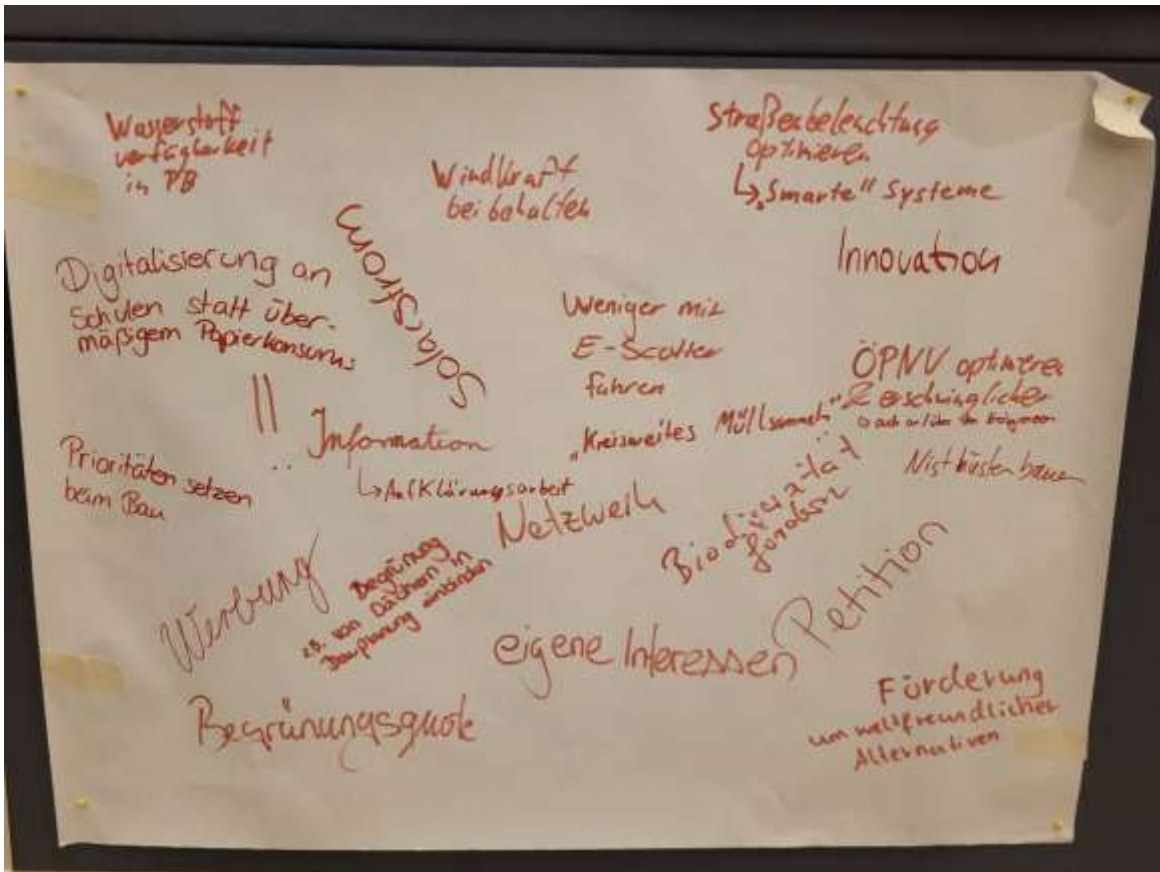 Wasserstoff
verfügbarkeit
in PB
Windkraft
beibehalten
Straßenbeleuchtung
optimieren
↳ „Smarte" Systeme
Innovation
Solarstrom
Digitalisierung an
Schulen statt über-
mäßigem Papierkonsums
Weniger mit
E-Scooter
fahren
ÖPNV optimieren
& erschwinglicher
Information
↳ Aufklärungsarbeit
„Kreisweites Müllsammeln"
Nistkästen bauen
Prioritäten setzen
beim Bau
Netzwerk
Biodiversität
fördern
Werbung
Begrünung
z.B. von Dächern in
Bauplanung einbinden
eigene Interessen
Petition
Begrünungsquote
Förderung
umweltfreundlicher
Alternativen